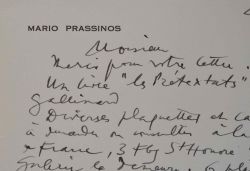 MARIO PRASSINOS
Monsieur
Merci pour votre lettre.
Un livre "les Prétextats"
Gallimard
Diverses plaquettes et ca
à demander ou consulter à la
France, 3 St Honoré
Galerie la demeure, 6 pl